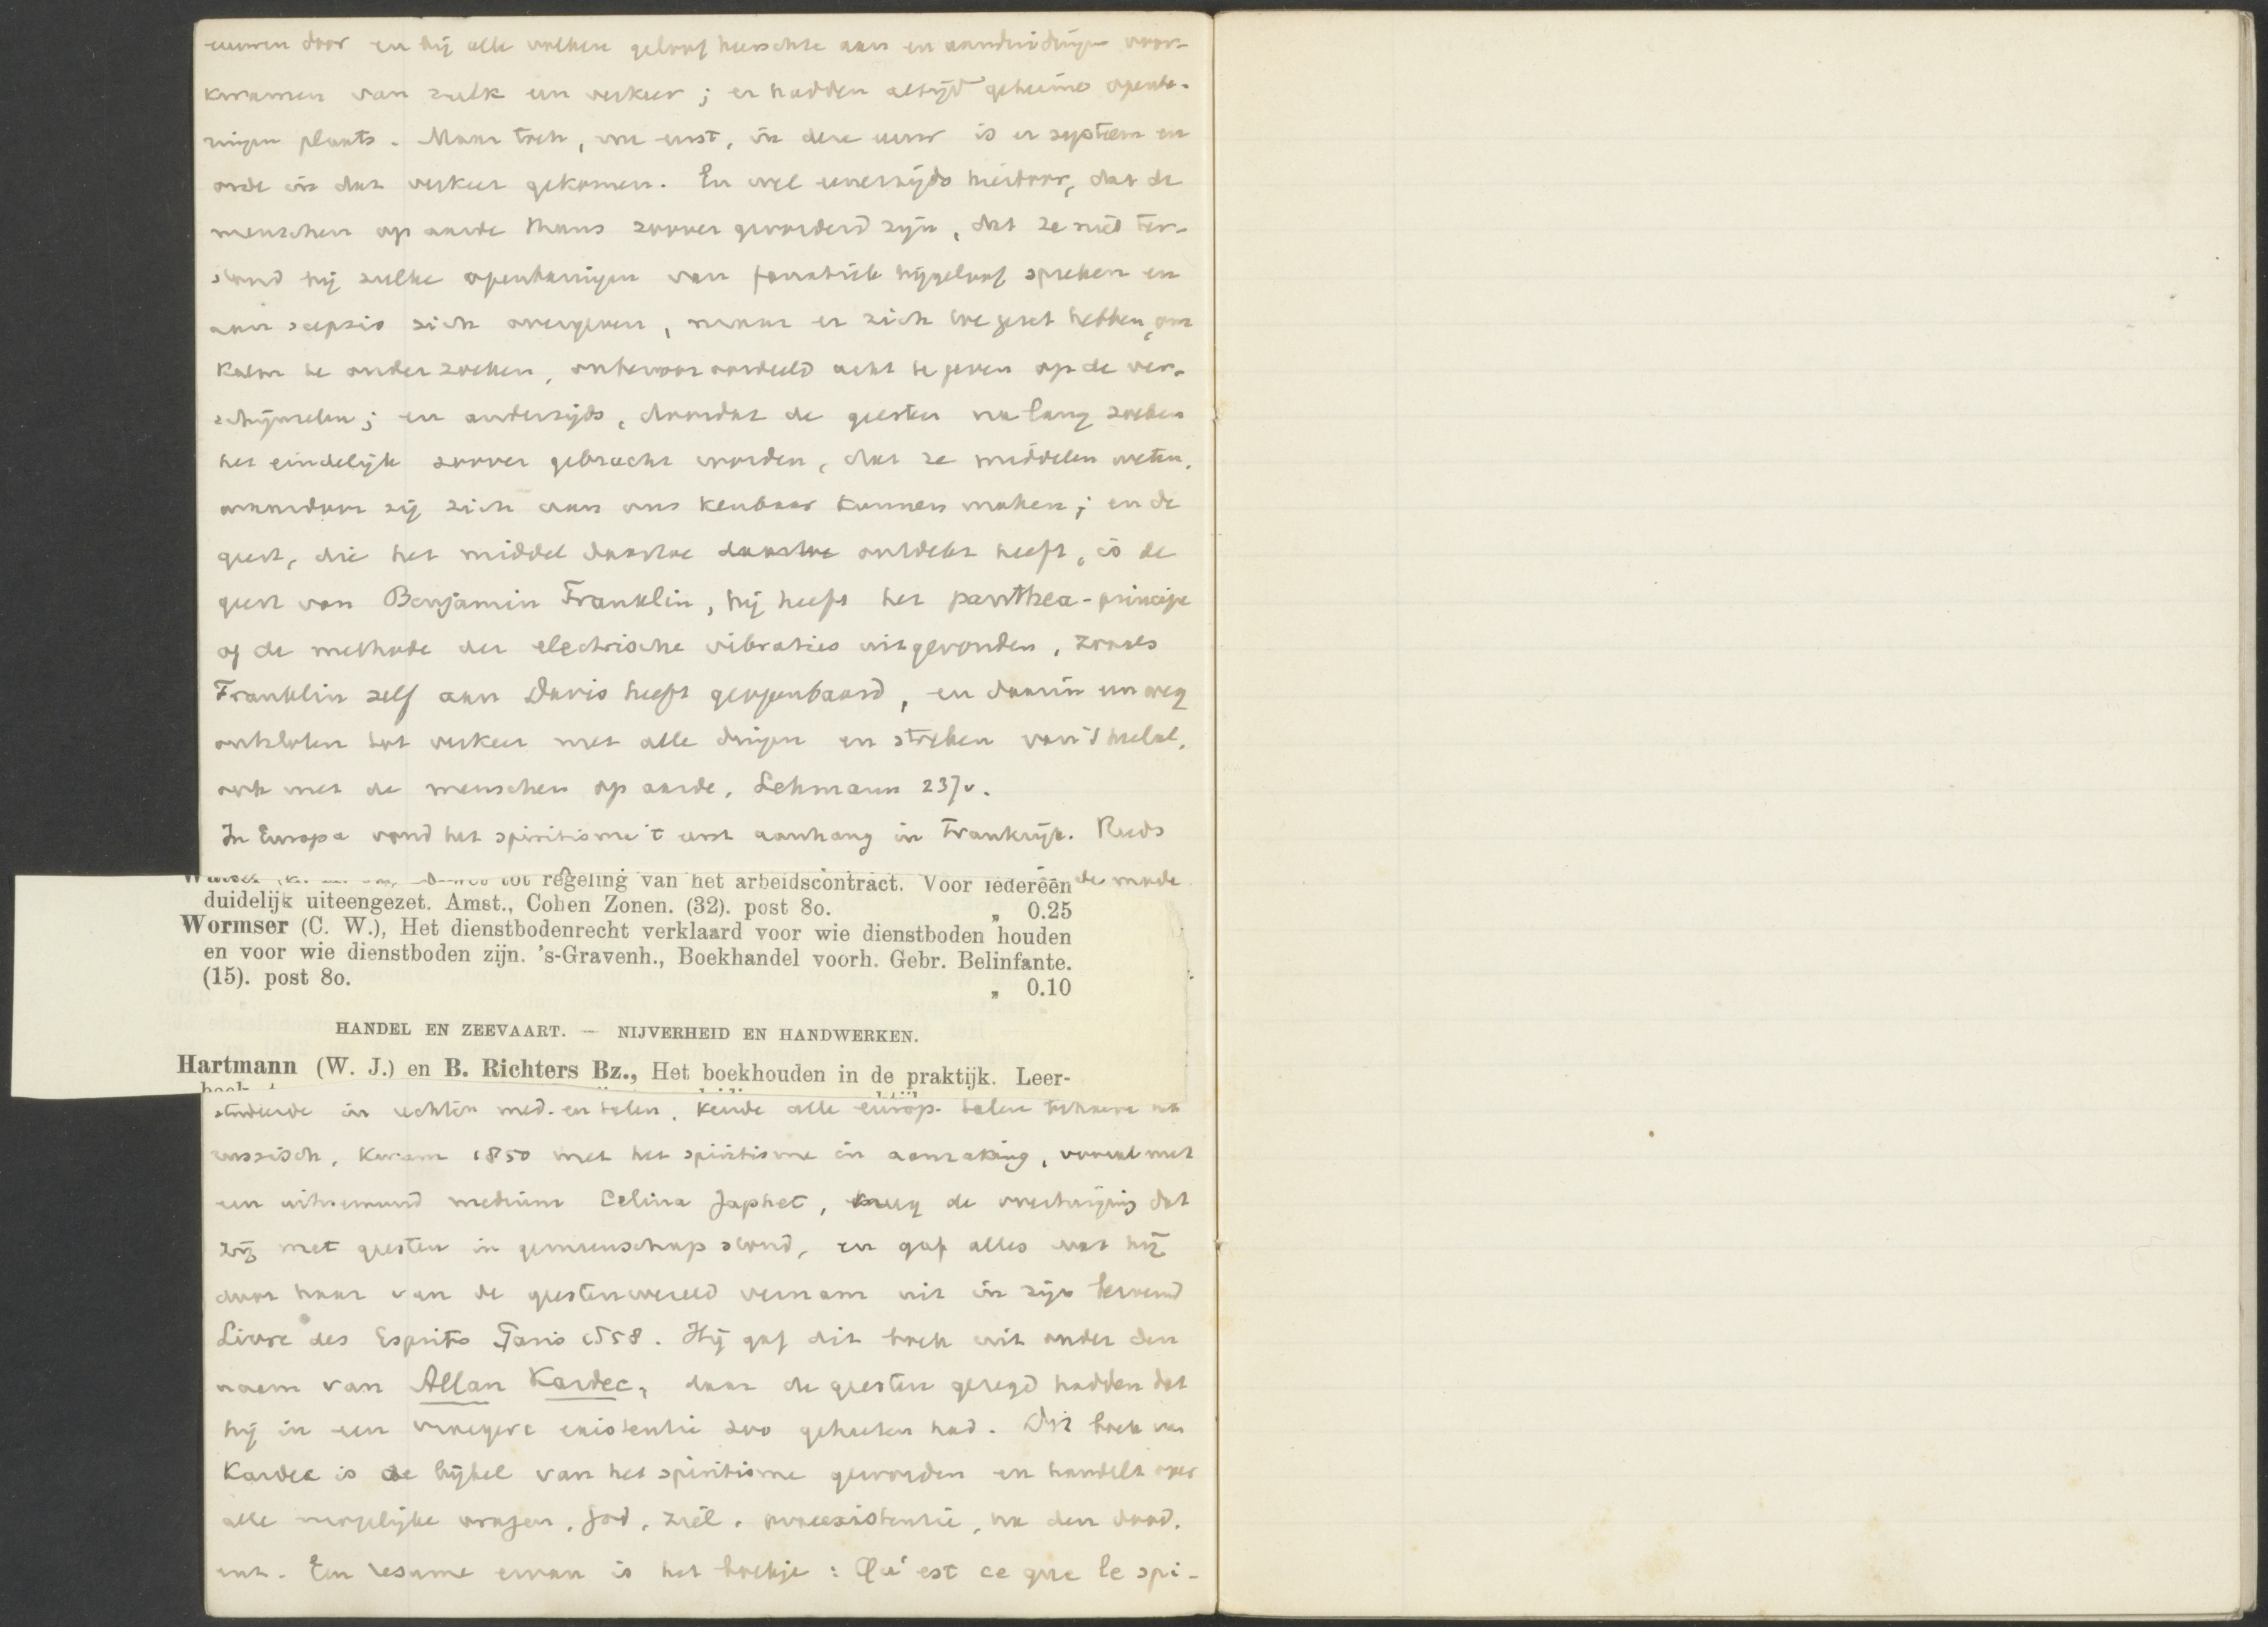 eeuwen door en bij alle volken geloof heerschte aan en aanduidingen voor-
kwamen van zulk een verkeer; er hadden altijd geheime openba-
ringen plaats. Maar toch, nu eerst, in deze eeuw is er systeem en
orde in dat verkeer gekomen. En wel eenerzijds hierdoor, dat de
menschen op aarde thans zoover gevorderd zijn, dat ze niet ter-
stond bij zulke openbaringen van fanatiek bijgeloof spreken en
aan scepsis zich overgeven, maar er zich toe gezet hebben, om
kalm te onderzoeken, onbevooroordeeld acht te geven op de ver-
schijnselen; en anderzijds, doordat de geesten na lang zoeken
het eindelijk zoover gebracht worden, dat ze middelen weten,
waardoor zij zich aan ons kenbaar kunnen maken; en de
geest, die het middel daartoe daartoe ontdekt heeft, is de
geest van Benjamin Franklin, hij heeft het panthea-principe
of de methode der electrische vibraties uitgevonden, zooals
Franklin zelf aan Davis heeft geopenbaard, en daarin een weg
ontsloten tot verkeer met alle dingen en streken van 't heelal,
ook met de menschen op aarde. Lehmann 237v.
In Europa vond het spiritisme 't eerst aanhang in Frankrijk. Reeds
de
tot regeling van het arbeidscontract. Voor iedereen
duidelijk uiteengezet. Amst., Cohen Zonen. (32). post 8o. „ 0.25
Wormser (C. W.), Het dienstbodenrecht verklaard voor wie dienstboden houden
en voor wie dienstboden zijn. 's-Gravenh., Boekhandel voorh. Gebr. Belinfante.
(15). post 8o. „ 0.10
HANDEL EN ZEEVAART. — NIJVERHEID EN HANDWERKEN.
Hartmann (W. J.) en B. Richters Bz., Het boekhouden in de praktijk. Leer-
studeerde in rechten med. en talen, kende alle europ. talen behalve het
russisch, kwam 1850 met het spiritisme in aanraking, vooral met
een uitnemend medium Celina Japhet, kreeg de overtuiging dat
zij met geesten in gemeenschap stond, en gaf alles wat hij
door haar van de geestenwereld vernam uit in zijn beroemd
Livre des Esprits Paris 1858. Hij gaf dit boek uit onder den
naam van Allan Kardec, daar de geesten gezegd hadden dat
hij in een vroegere existentie zoo geheeten had. Dit boek van
Kardec is de bijbel van het spiritisme geworden en handelt over
alle mogelijke vragen, God, ziel, praeexistentie, na den dood,
enz. Een resume ervan is het boekje: Qu'est ce que le spi-